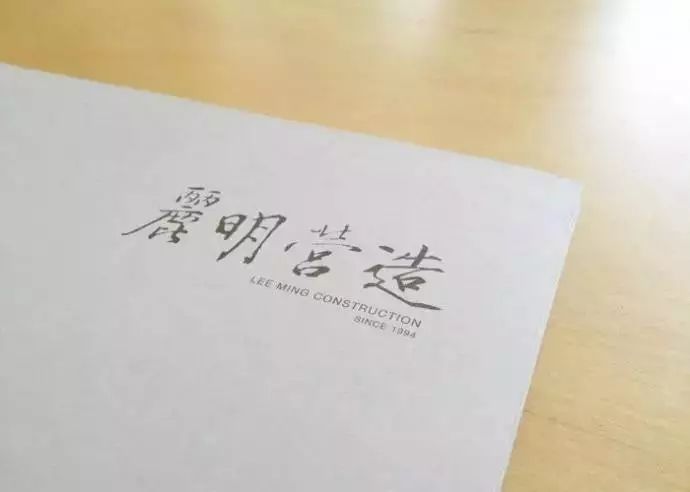 麗明营造
LEE MING CONSTRUCTION
SINCE 1994